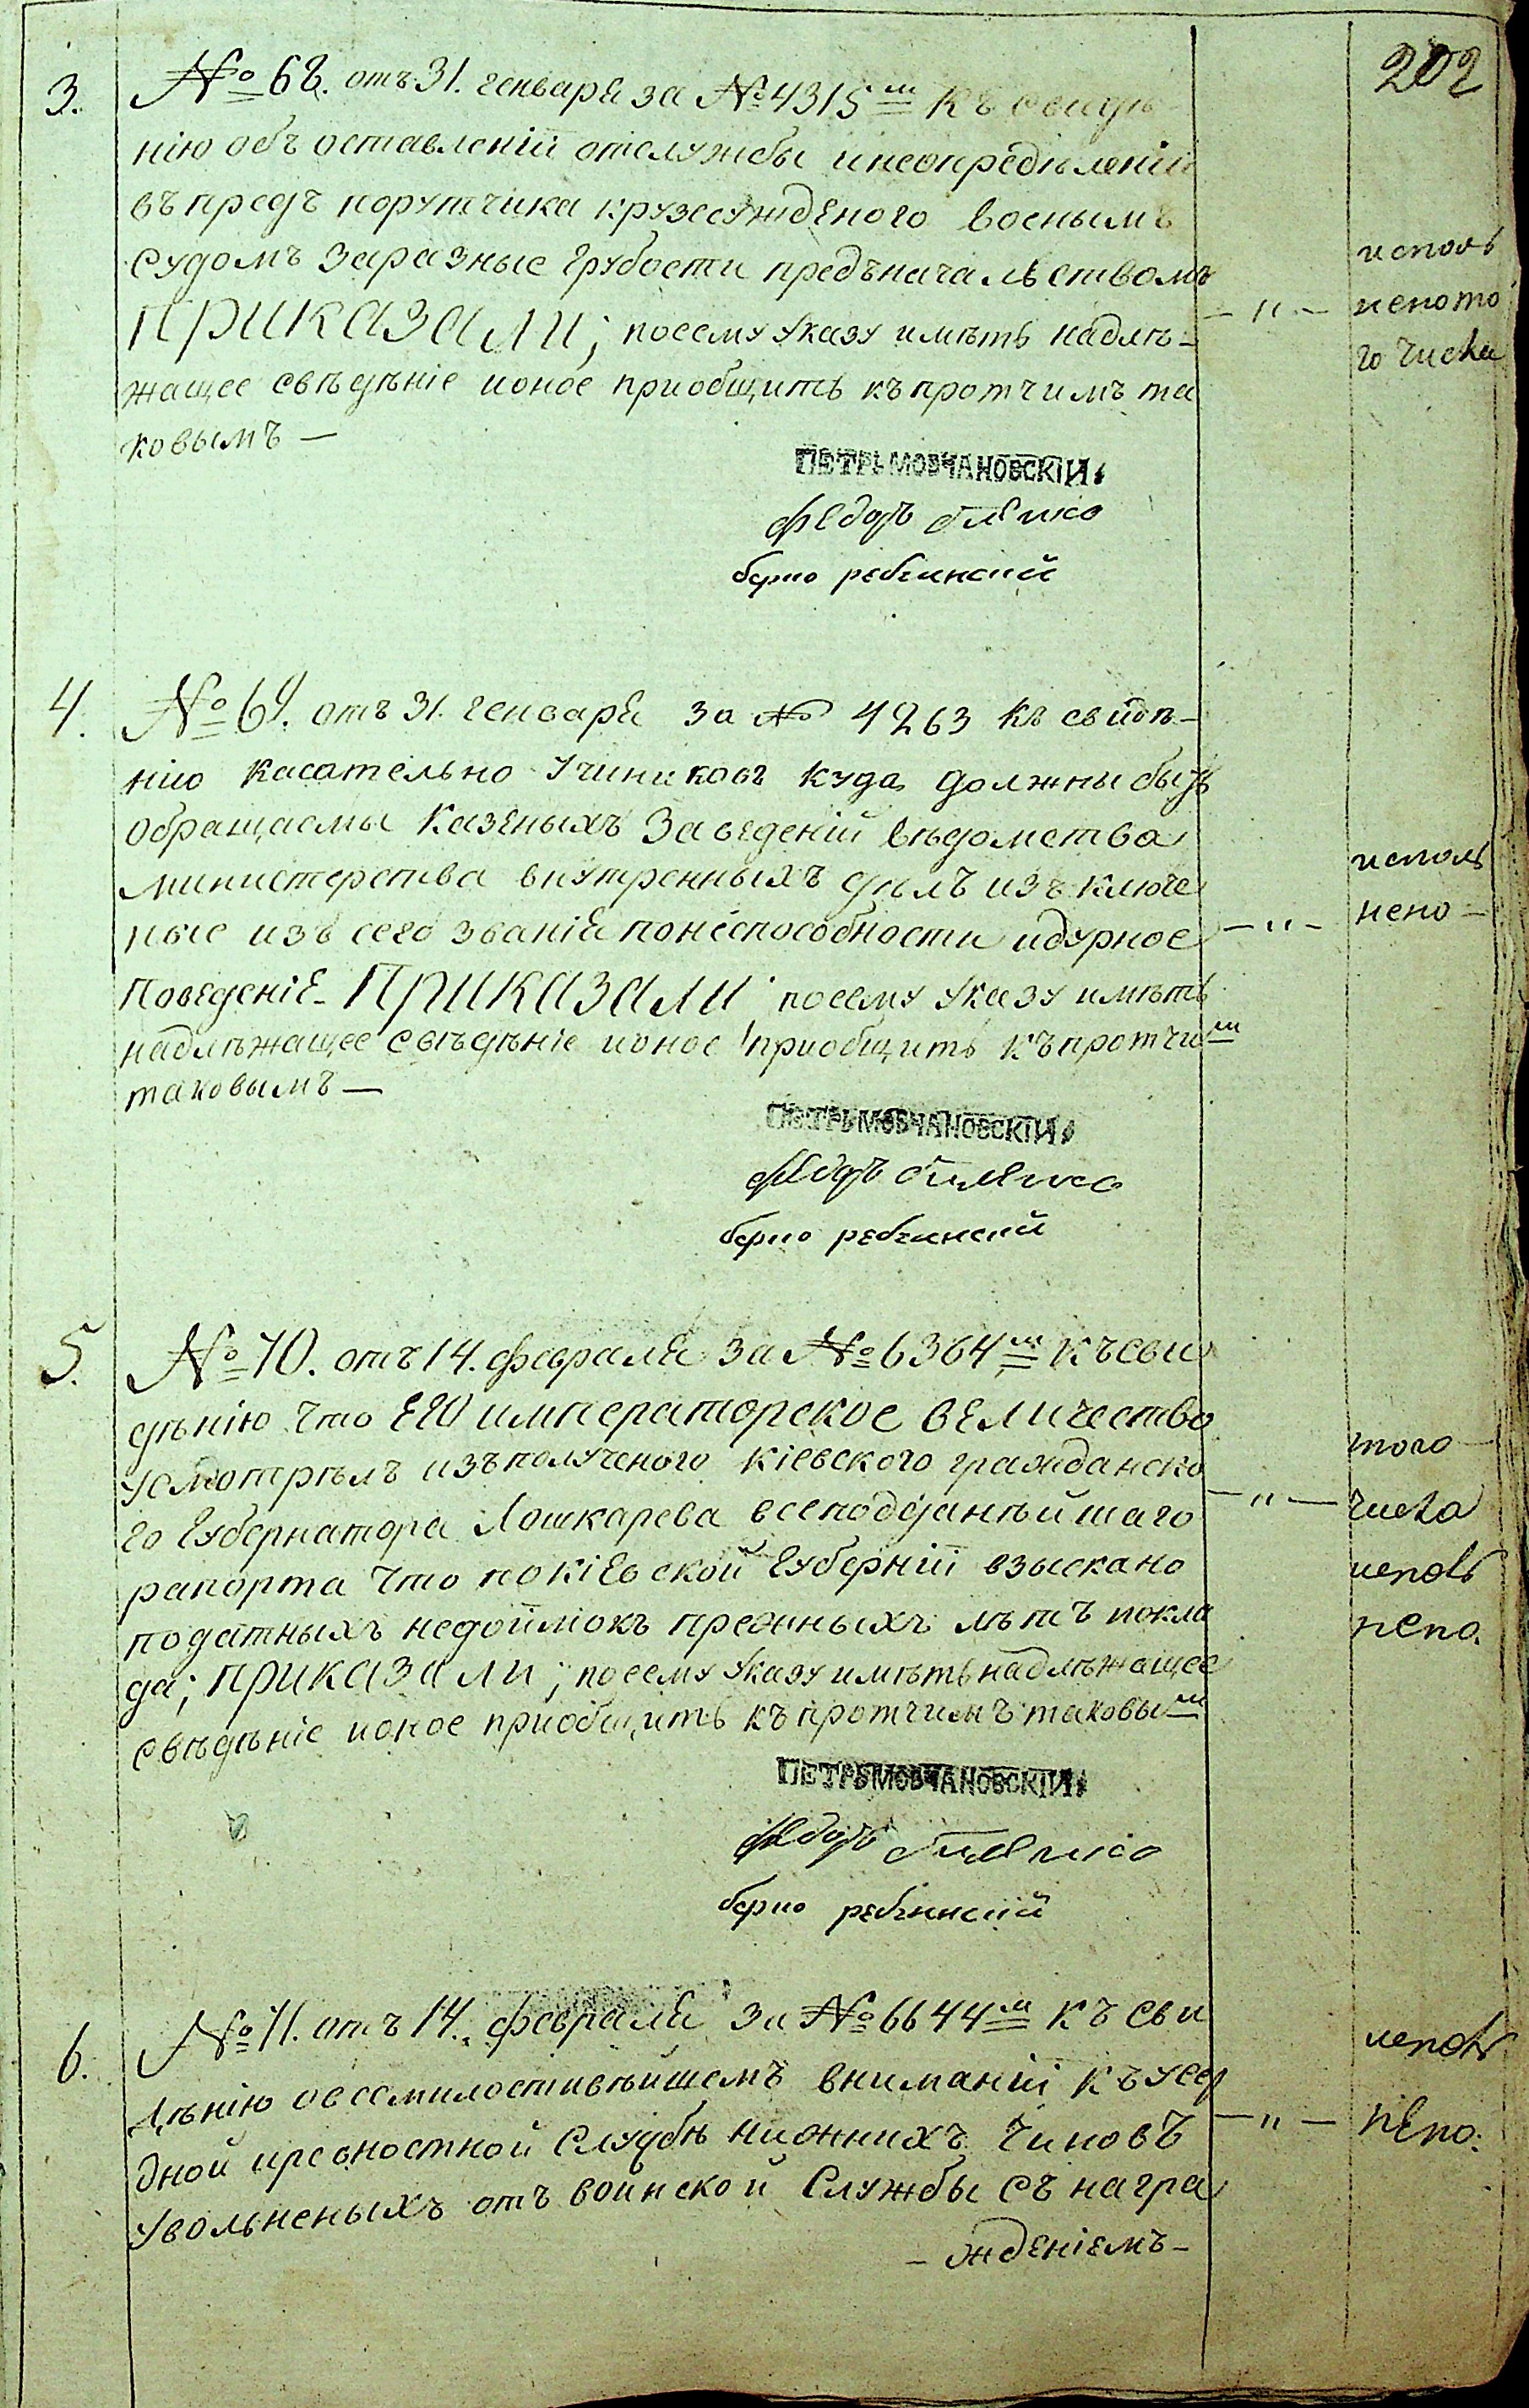 202
3. № 68. отъ 31. генваря за № 4315м къ свидѣ
нію объ оставленіи отслужбы инеопредѣленіи
въпредъ порутчика крузесужденого военымъ
судомъ заразные грубости предъначальствомъ
приказали; посему указу имѣть надлѣ-
жащее свѣдѣніе ионое приобщить къпротчимъ та
ковымъ —
— " —
исполь
нено то
го числа
ПЕТРЪ МОВЧАНОВСКІЙ
федоръ
берко
4. № 69. отъ 31. генваря за № 4263 къ свидѣ-
нію касательно учиниковъ куда должны быть
обращаемы казеныхъ заведеній вѣдомства
министерства внутренныхъ дѣлъ изъключе
ные изъ сего званія понеспособности идурное
поведеніе - приказали; посему указу имѣть
надлѣжащее свѣдѣніе ионое приобщить къпротчим
таковымъ —
— " —
исполь
нено —
ПЕТРЪ МОВЧАНОВСКІЙ
федоръ
берко
5. № 70. отъ 14. февраля за № 6364м къ сви
дѣнію что его императорское величество
усмотрѣлъ изъполученого кіевского гражданско
го губернатора Лошкарева всеподданѣйшаго
рапорта что покіевской губерніи взыскано
податныхъ недоимокъ прежныхъ лѣтъ покла
да; приказали; посему указу имѣть надлѣжащее
свѣдѣніе ионое приобщить къпротчимъ таковым
— " —
того —
числа
исполь
нено.
ПЕТРЪ МОВЧАНОВСКІЙ
федоръ
берко
6. № 71. отъ 14. февраля за № 6644м къ сви
дѣнію овсемилостивѣйшемъ вниманіи къ усер
дной иревностной службѣ нижнихъ чиновъ
увольненыхъ отъ воинской службы съ награ
- жденіемъ -
— " —
исполь
нено.